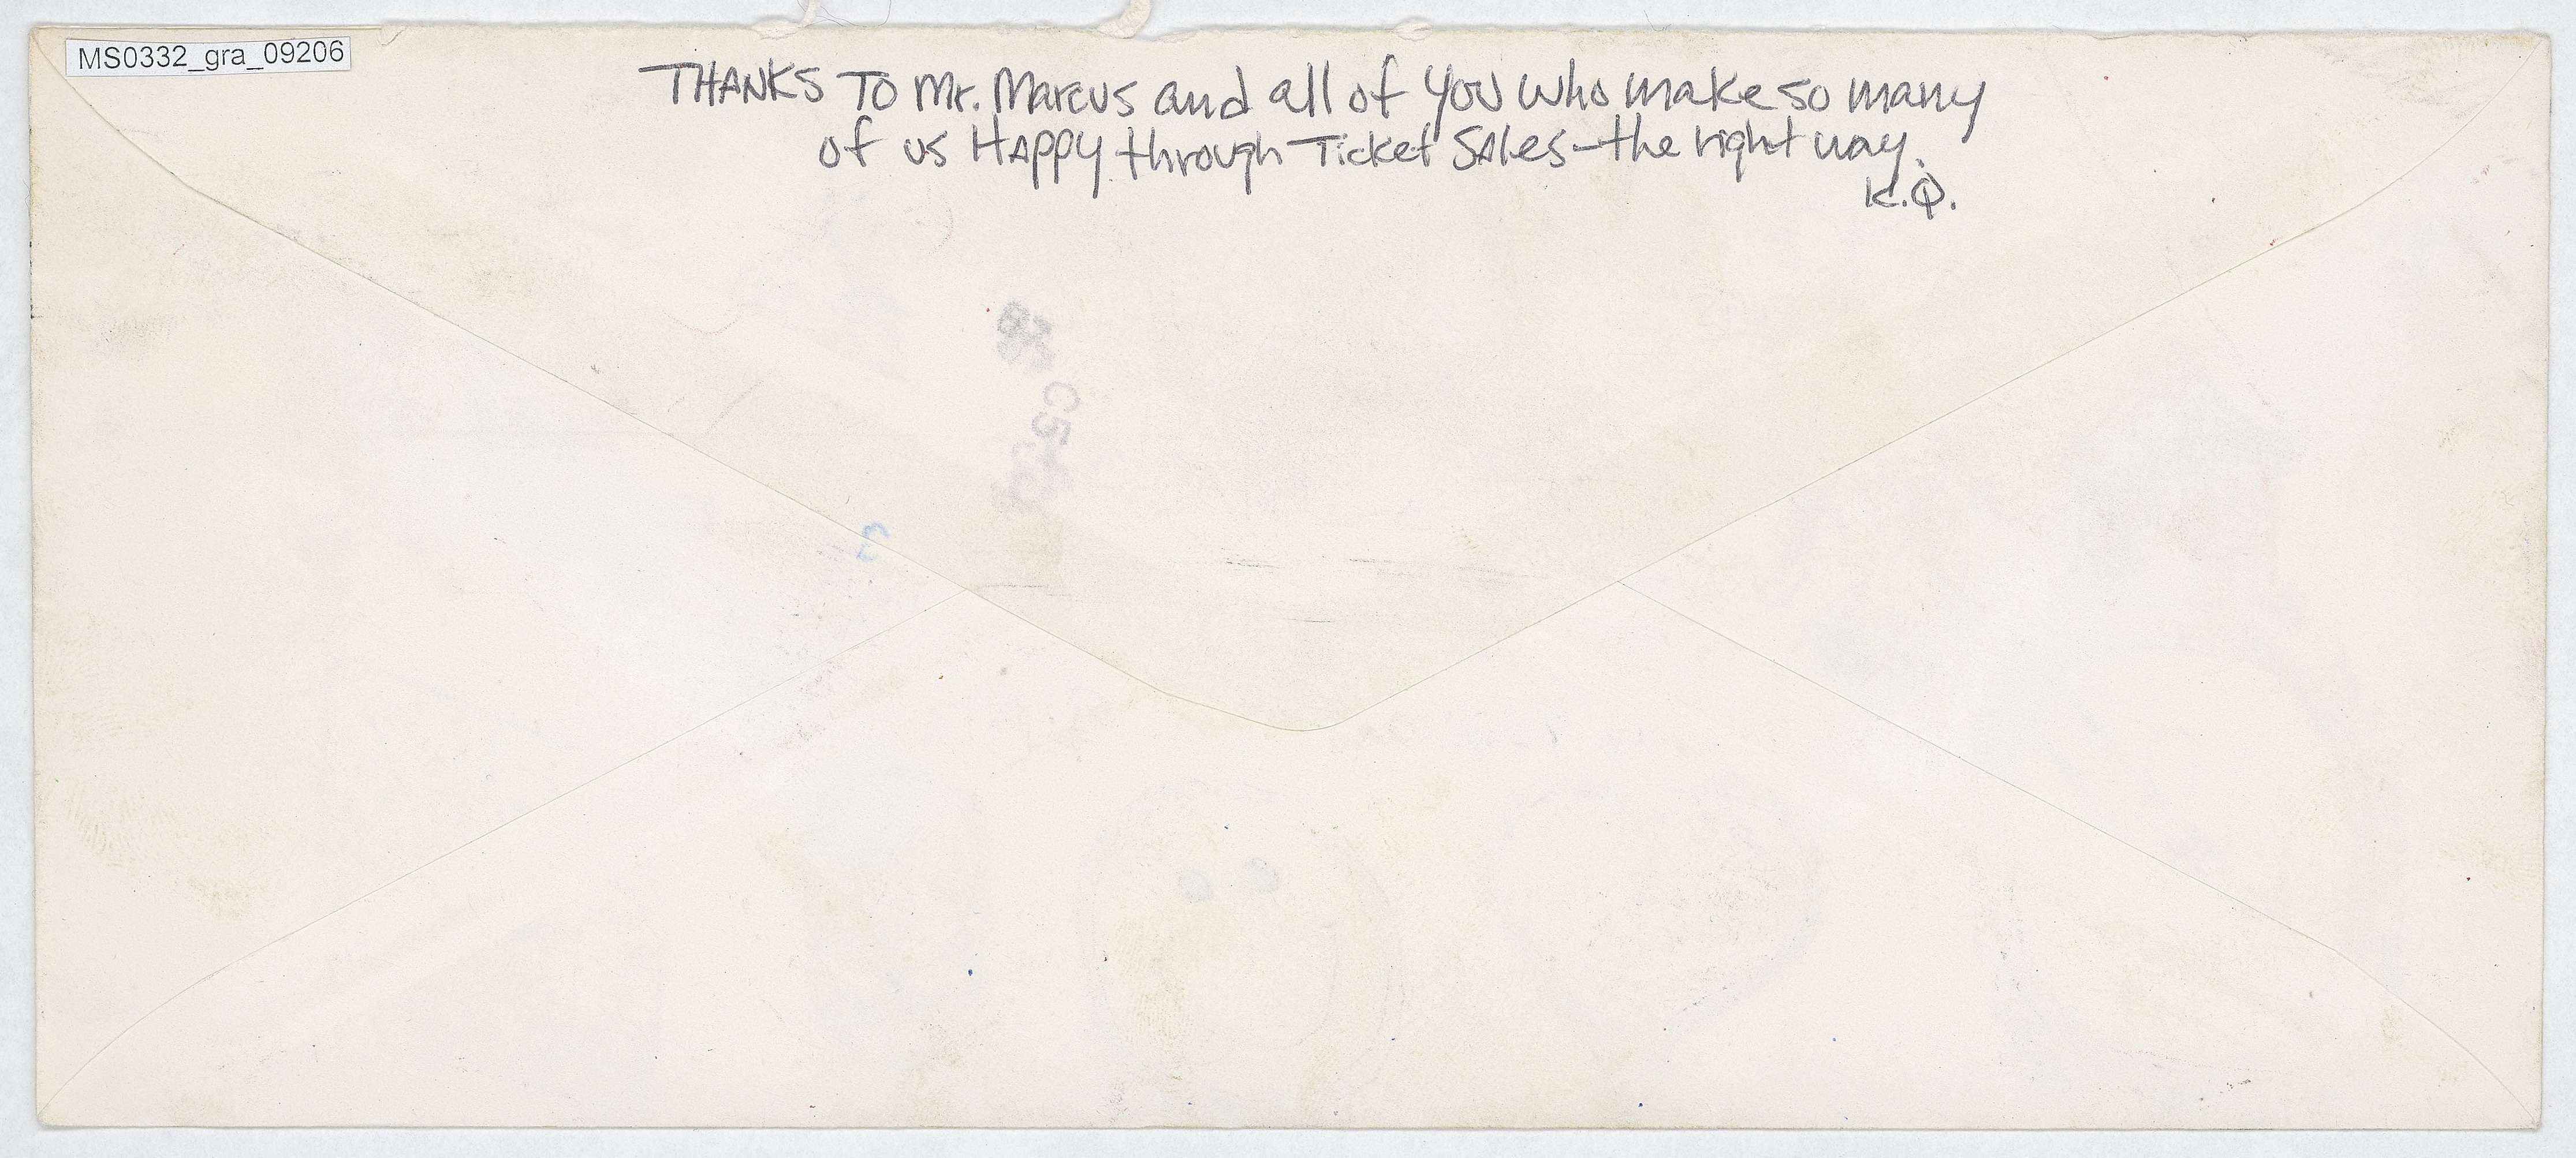 MS0332_gra_09206
THANKS TO Mr. Marcus and all of YOU who make so many
of us HAppy through Ticket SAles - the right way.
K.Q.
3